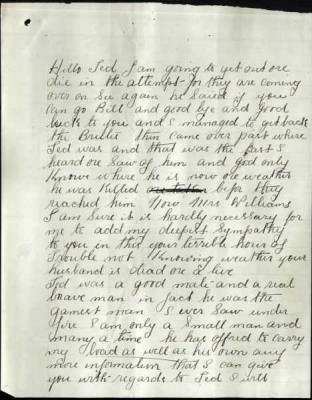 Hillo Ted I am going to get out ore
die in the attempt for they are coming
over on Sie again he saied if you
can go Bill and good bye and good
luck to you and I managed to get back
the Brutes then came over past where
Ted was and that was the last I
heard ore Saw of him and god only
knows where he is now ore weather
he was killed ore taken befor they
reached him Now Mrs Williams
I am Sure it is hardly necessary for
me to add my deepest Sympathy
to you in this your terrible hour of
Trouble not Knowing weather your
husband is dead ore a live
Ted was a good mate and a real
brave man in fact he was the
gamest man I ever Saw under
fire I am only a Small man and
many a time he has offred to carry
my load as well as his own any
more information that I can give
you with regards to Ted I will